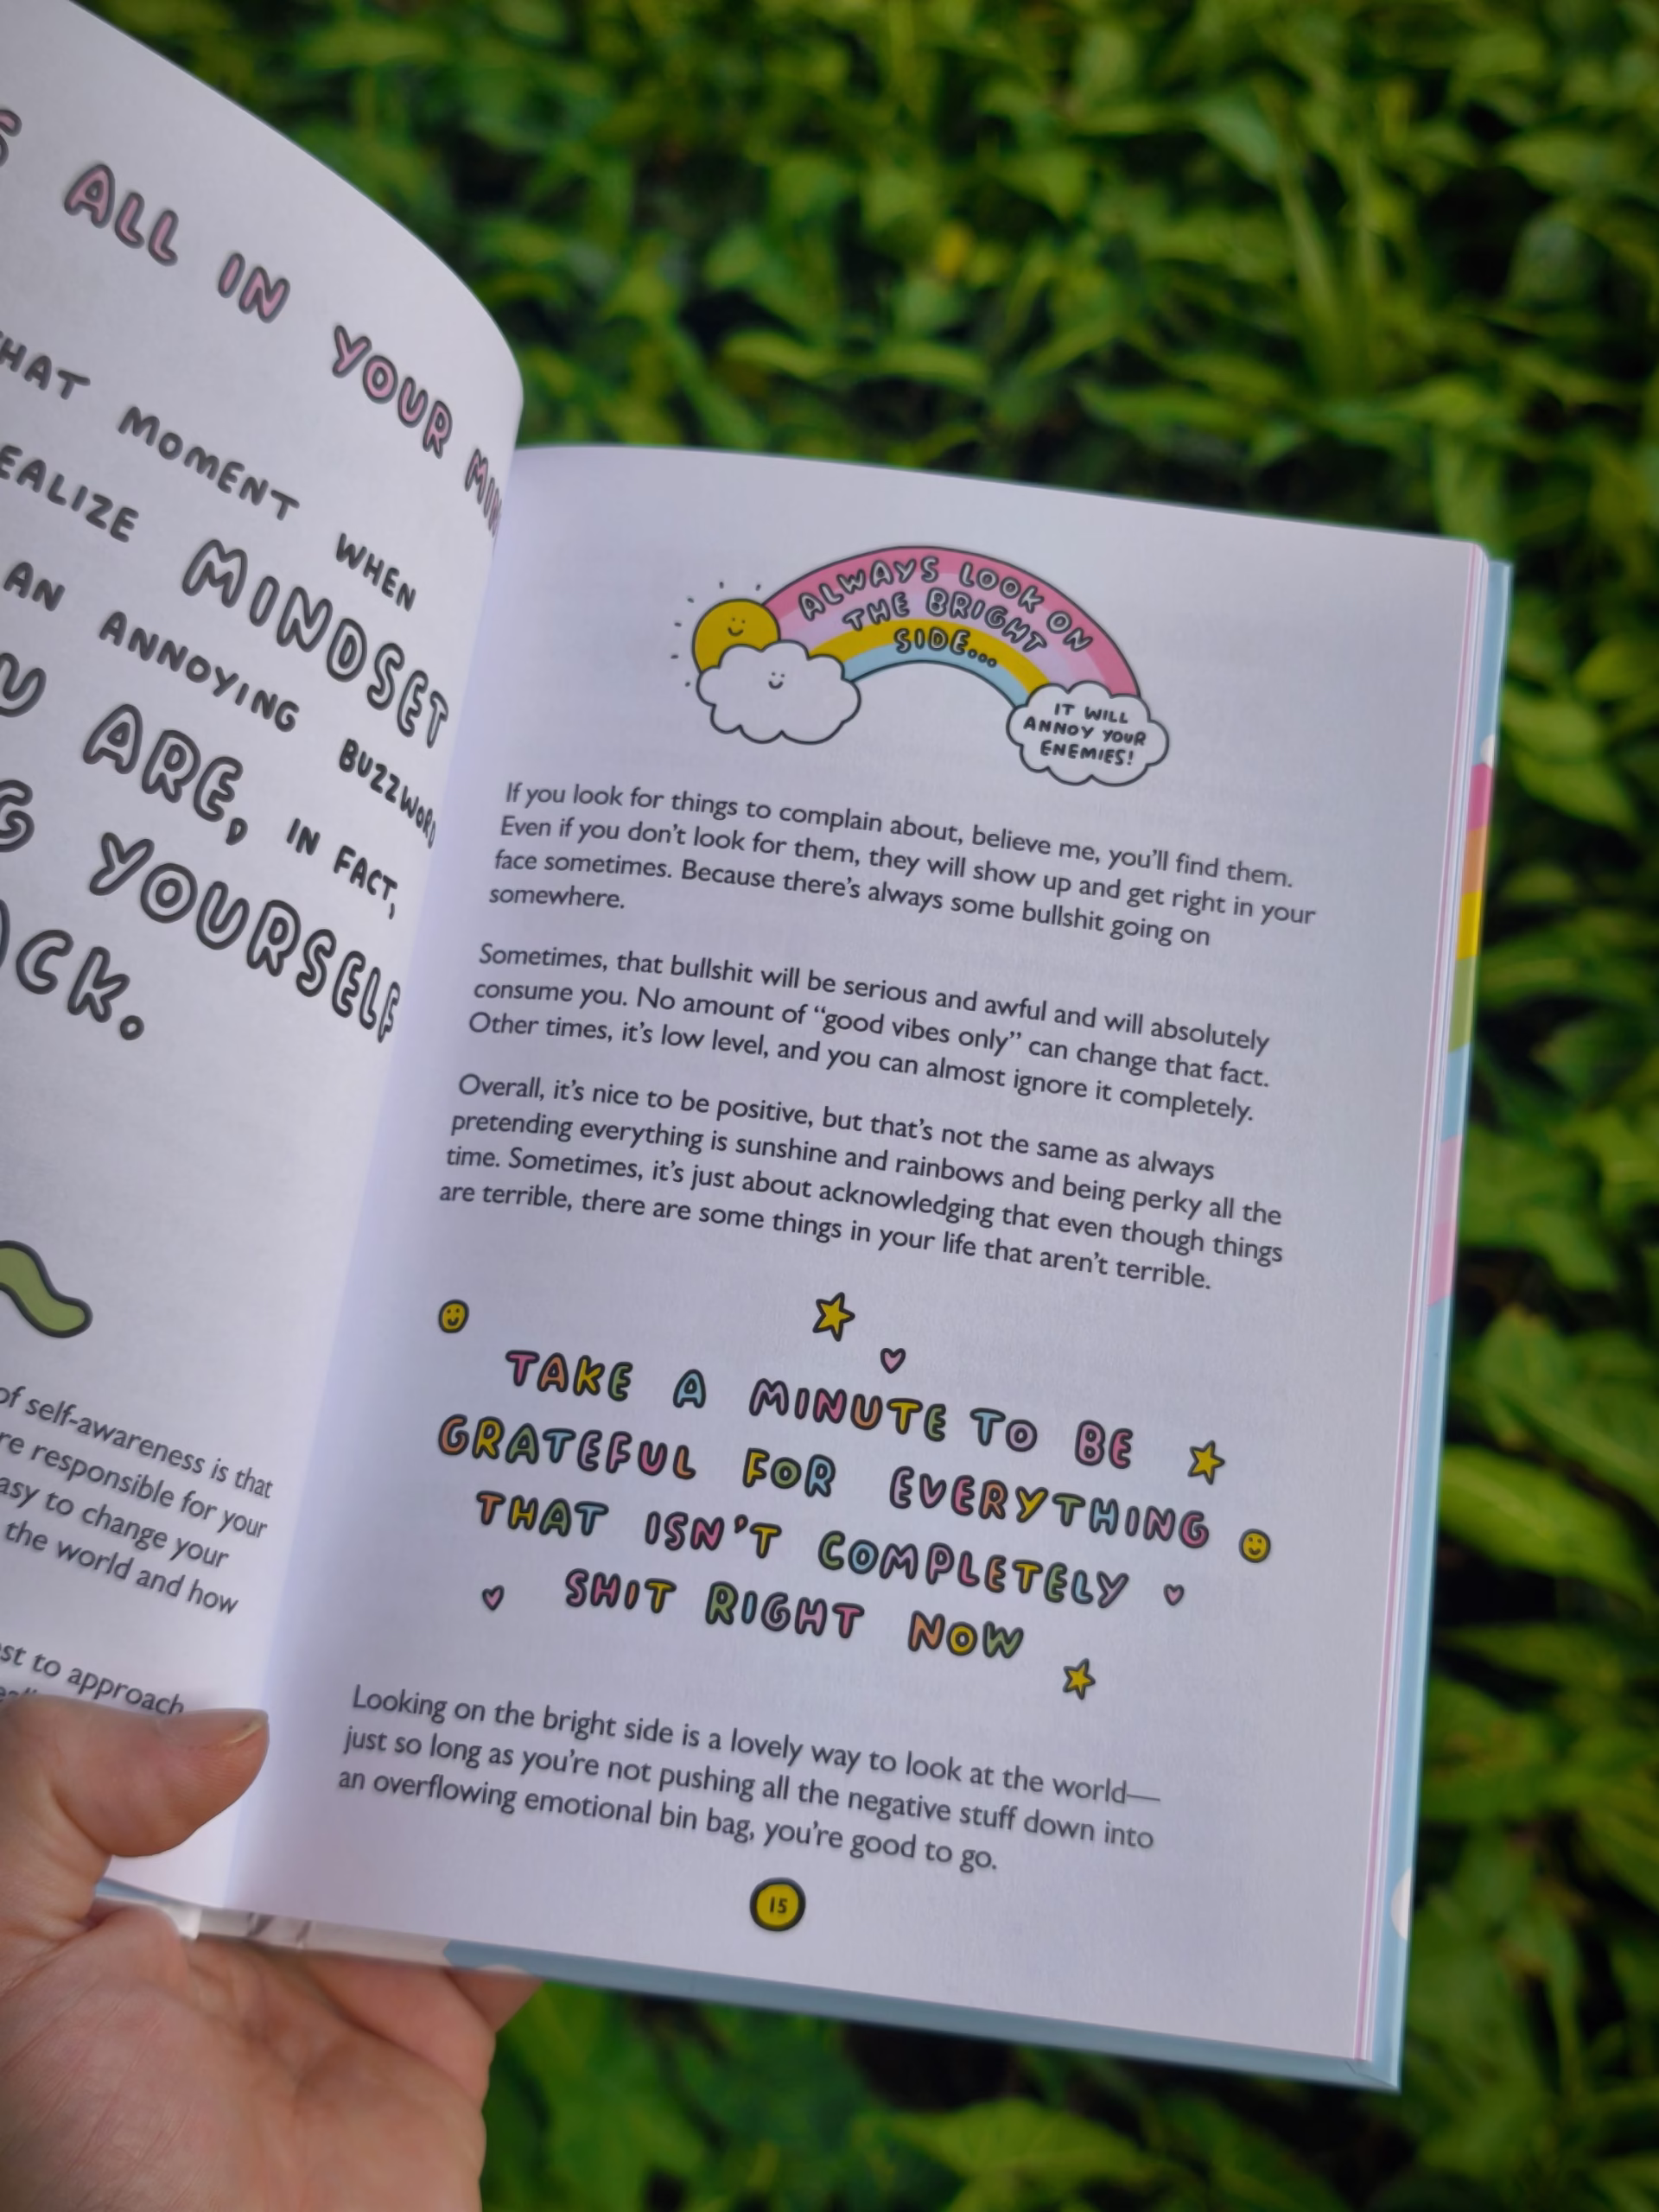 ALL IN YOUR
THAT MOMENT WHEN
REALIZE MINDSET
AN ANNOYING BUZZWORD
ARE, IN FACT,
YOURSELF
of self-awareness is that
responsible for your
easy to change your
the world and how
to approach
ALWAYS LOOK ON
THE BRIGHT
SIDE...
IT WILL
ANNOY YOUR
ENEMIES!
If you look for things to complain about, believe me, you'll find them.
Even if you don't look for them, they will show up and get right in your
face sometimes. Because there's always some bullshit going on
somewhere.
Sometimes, that bullshit will be serious and awful and will absolutely
consume you. No amount of “good vibes only” can change that fact.
Other times, it's low level, and you can almost ignore it completely.
Overall, it's nice to be positive, but that's not the same as always
pretending everything is sunshine and rainbows and being perky all the
time. Sometimes, it's just about acknowledging that even though things
are terrible, there are some things in your life that aren't terrible.
TAKE A MINUTE TO BE
GRATEFUL FOR EVERYTHING
THAT ISN'T COMPLETELY
SHIT RIGHT NOW
Looking on the bright side is a lovely way to look at the world—
just so long as you're not pushing all the negative stuff down into
an overflowing emotional bin bag, you're good to go.
15